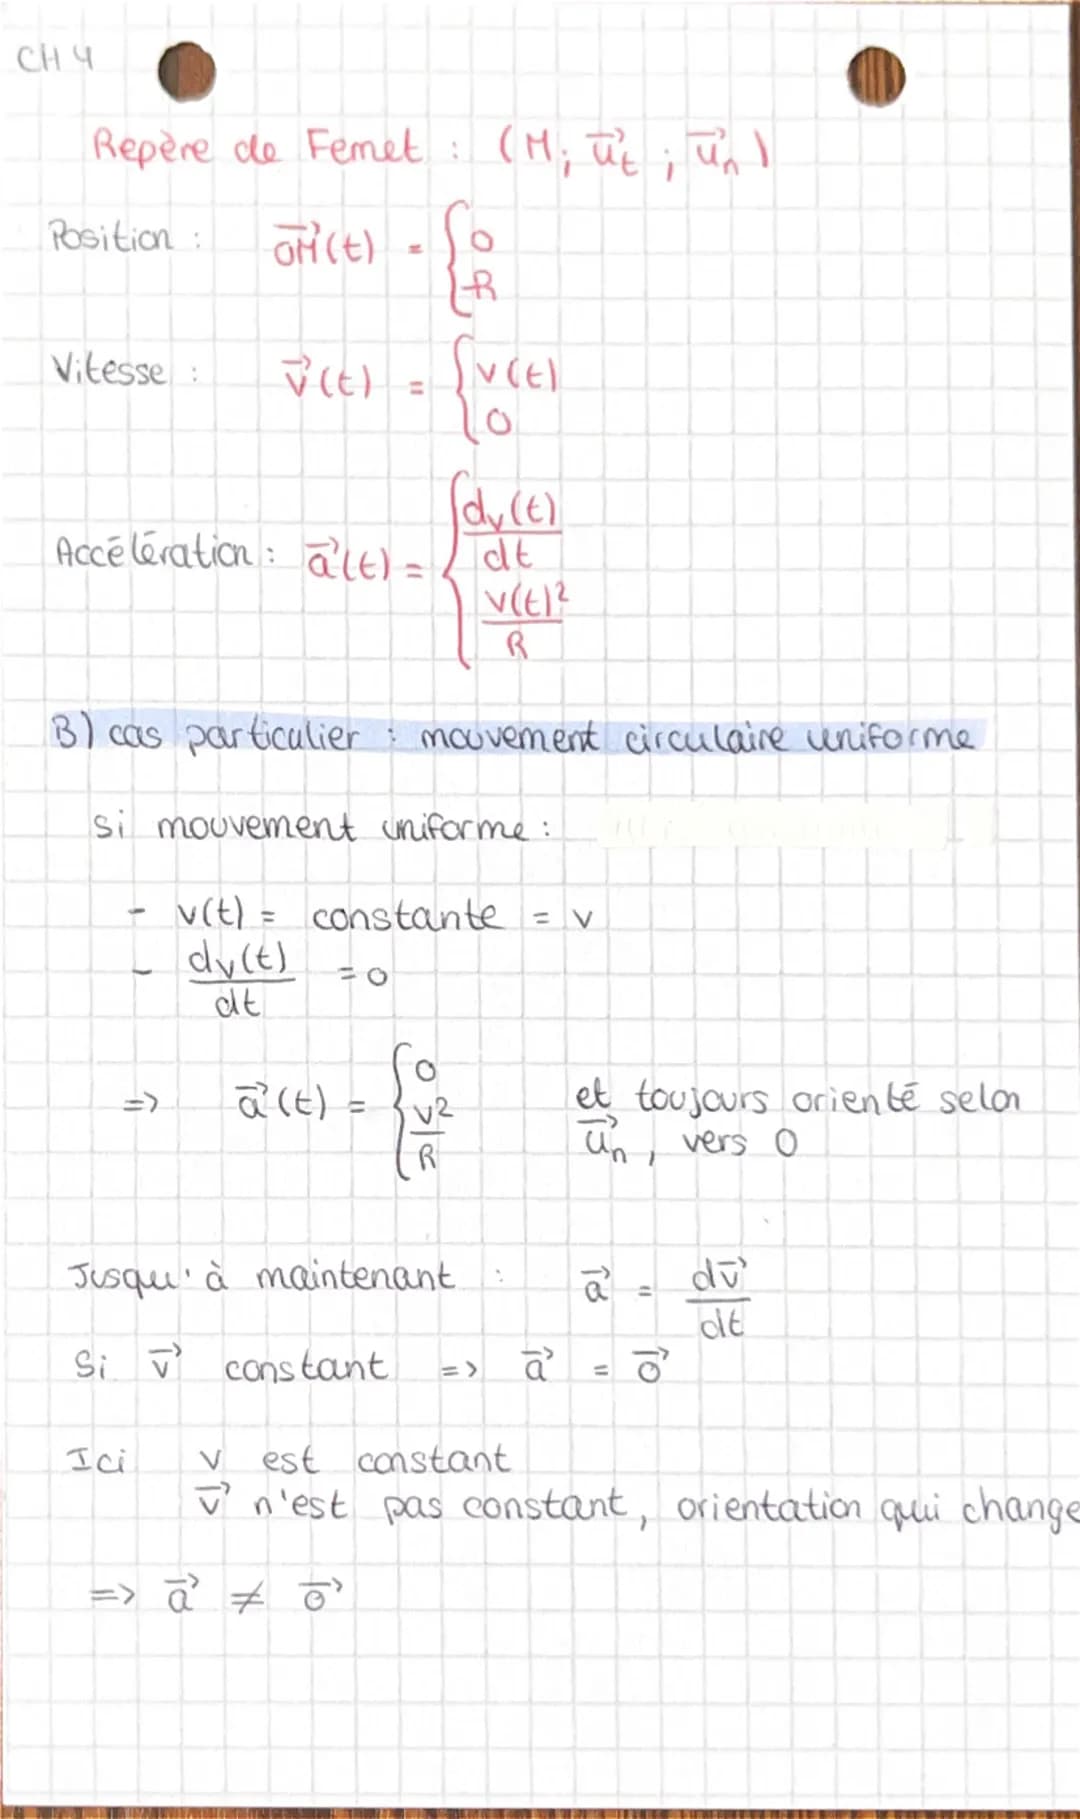 CH 4
Repère de Fernet : (M; u⃗t ; u⃗n)
Position : OM⃗(t) = { 0
-R
Vitesse : v⃗(t) = { v(t)
0
Accélération : a⃗(t) = { dv(t)/dt
v(t)²/R
B) cas particulier : mouvement circulaire uniforme
si mouvement uniforme :
- v(t) = constante = v
- dv(t)/dt = 0
=> a⃗(t) = { 0
v²/R
et toujours orienté selon
u⃗n, vers O
Jusqu'à maintenant : a⃗ = dv⃗/dt
Si v⃗ constant => a⃗ = o⃗
Ici v est constant
v⃗ n'est pas constant, orientation qui change
=> a⃗ ≠ o⃗